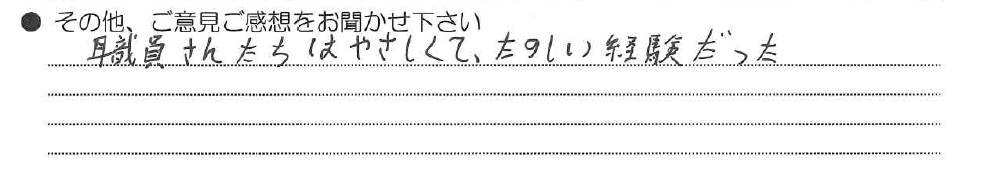 ● その他、ご意見ご感想をお聞かせ下さい
職員さんたちはやさしくて、たのしい経験だった